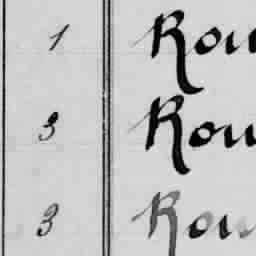 1 Rou
3 Rou
3 Rou